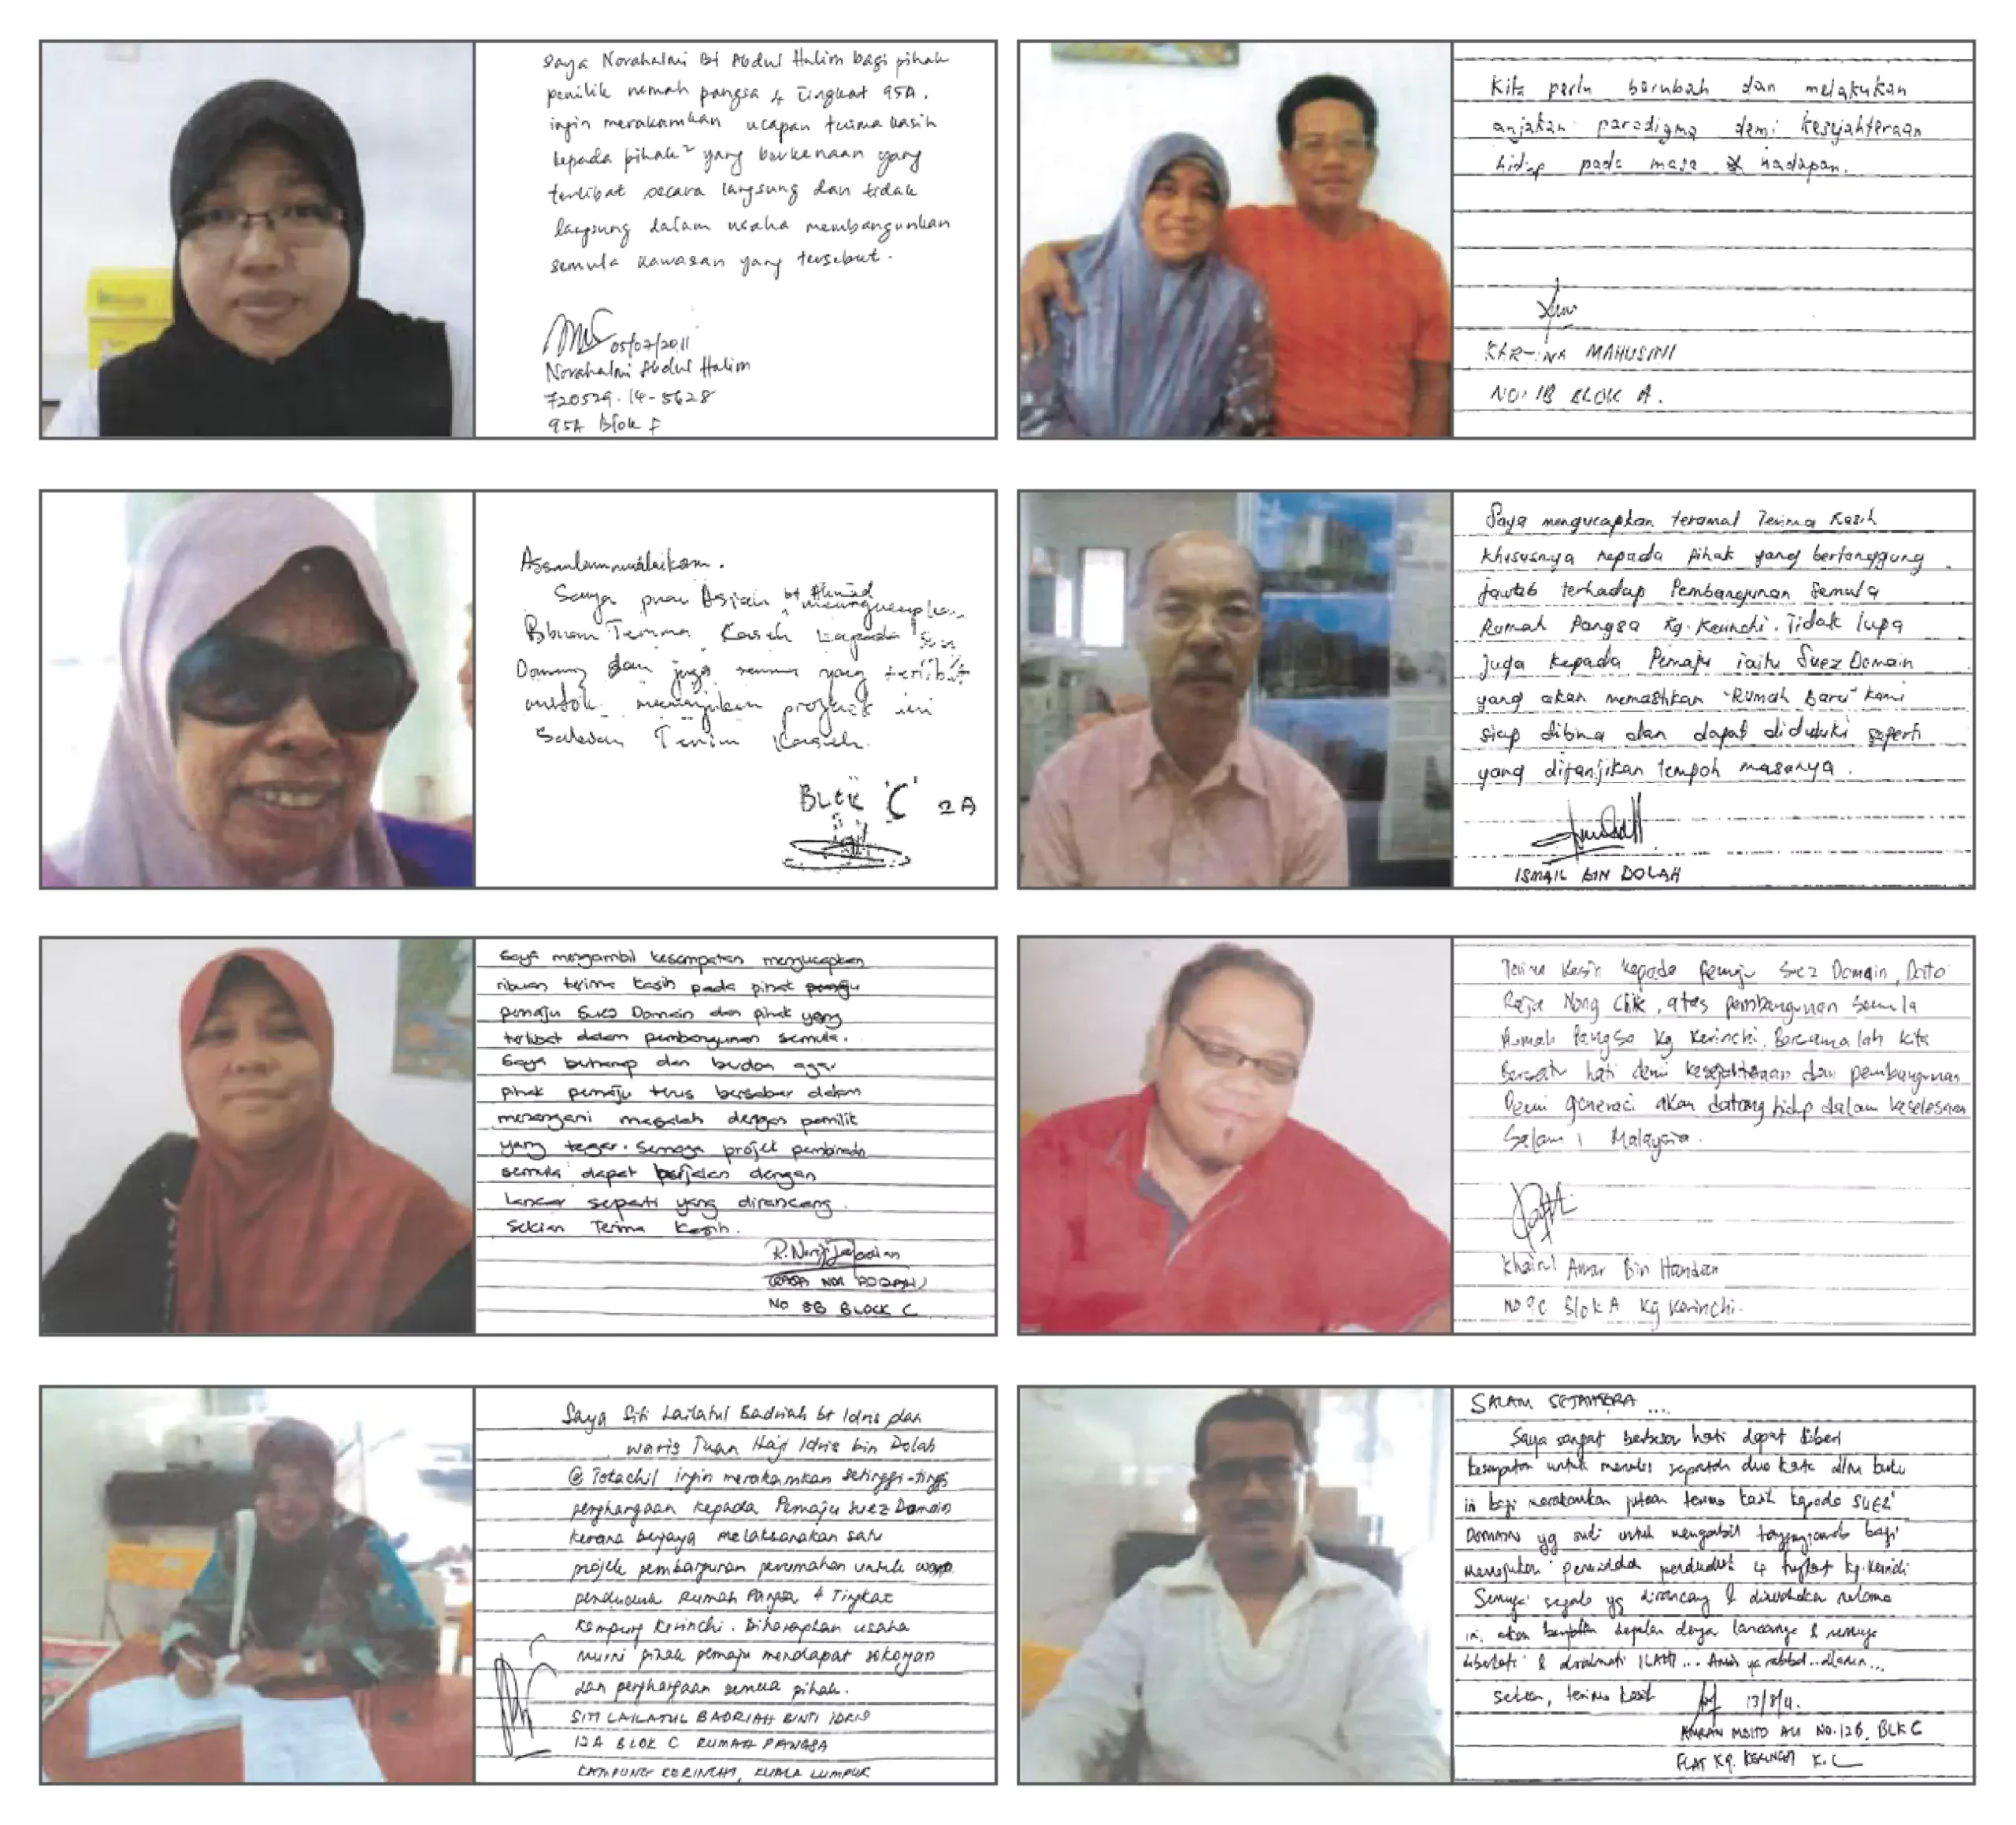 Saya Norahalmi Bt Abdul Halim bagi pihak
pemilik rumah pangsa 4 Tingkat 95A.
ingin merakamkan ucapan terima kasih
kepada pihak² yang berkenaan yang
terlibat secara langsung dan tidak
langsung dalam usaha membangunkan
semula kawasan yang tersebut.
05/07/2011
Norahalmi Abdul Halim
720529-14-5628
95A Blok F
Kita perlu berubah dan melakukan
anjakan paradigma demi kesejahteraan
hidup pada masa hadapan.
MAHUSINI
NO: 1B BLOK A.
Assalamumualaikom.
Saya puan Asiah bt Ahmad
Terima Kaseh kapada
dan juga semua yang
untok menunjukan projeck ini
Terima Kaseh.
BLCK 'C' 2A
Saya mengucapkan teramat Terima Kasih
khususnya kepada pihak yang bertanggung
jawab terhadap Pembangunan Semula
Rumah Pangsa Kg. Kerinchi. Tidak lupa
juga kepada Pemaju iaitu Suez Domain
yang akan memastikan "Rumah Baru" kami
siap dibina dan dapat diduduki seperti
yang dijanjikan tempoh masanya.
ISMAIL BIN DOLAH
Saya mengambil kesempatan mengucapkan
ribuan terima kasih pada pihak
pemaju Suez Domain dan pihak yang
terlibat dalam pembangunan semula.
Saya berharap dan berdoa agar
pihak pemaju terus bersabar dalam
menangani masalah dengan pemilik
yang tegar. Semoga projek pembinaan
semula dapat berjalan dengan
lancar seperti yang dirancang.
Sekian Terima Kasih.
NO 8B BLOCK C
Terima Kasih kepada pemaju Suez Domain, Dato
Raja Nong Chik, atas pembangunan semula
Rumah Pangsa Kg Kerinchi. Bersama lah kita
Bersatu hati demi kesejahteraan dan pembangunan
Demi generasi akan datang hidup dalam keselesaan
Salam 1 Malaysia.
Khairul Anuar Bin Handan
Blok A Kg Kerinchi.
Saya Siti Lailatul Badriah bt Idris dan
waris Tuan Haji Idris bin Dolah
@ Totachil ingin merakamkan setinggi-tinggi
penghargaan kepada Pemaju Suez Domain
kerana berjaya melaksanakan satu
projek pembangunan perumahan untuk warga
penduduk Rumah Pangsa 4 Tingkat
Kampung Kerinchi. Diharapkan usaha
murni pihak pemaju mendapat sokongan
dan penghargaan semua pihak.
SITI LAILATUL BADRIAH BINTI IDRIS
12A BLOK C RUMAH PANGSA
KAMPUNG KERINCHI, KUALA LUMPUR
SALAM SEJAHTERA ...
Saya sangat berbesar hati dapat diberi
kesempatan untuk menulis sepatah dua kata dlm buku
ini bagi merakamkan jutaan terima kasih kepada SUEZ
DOMAIN yg sudi untuk mengambil tanggungjawab bagi
penduduk 4 tingkat kg. Kerinchi
Semoga segala yg dirancang & diusahakan selama
ini akan berjalan dengan lancarnya & semoga
diberkati & dirahmati ILAHI ... Amin ya rabbal...
sekian, terima kasih
NO. 12B, BLK C
FLAT KG. KERINCHI K.L